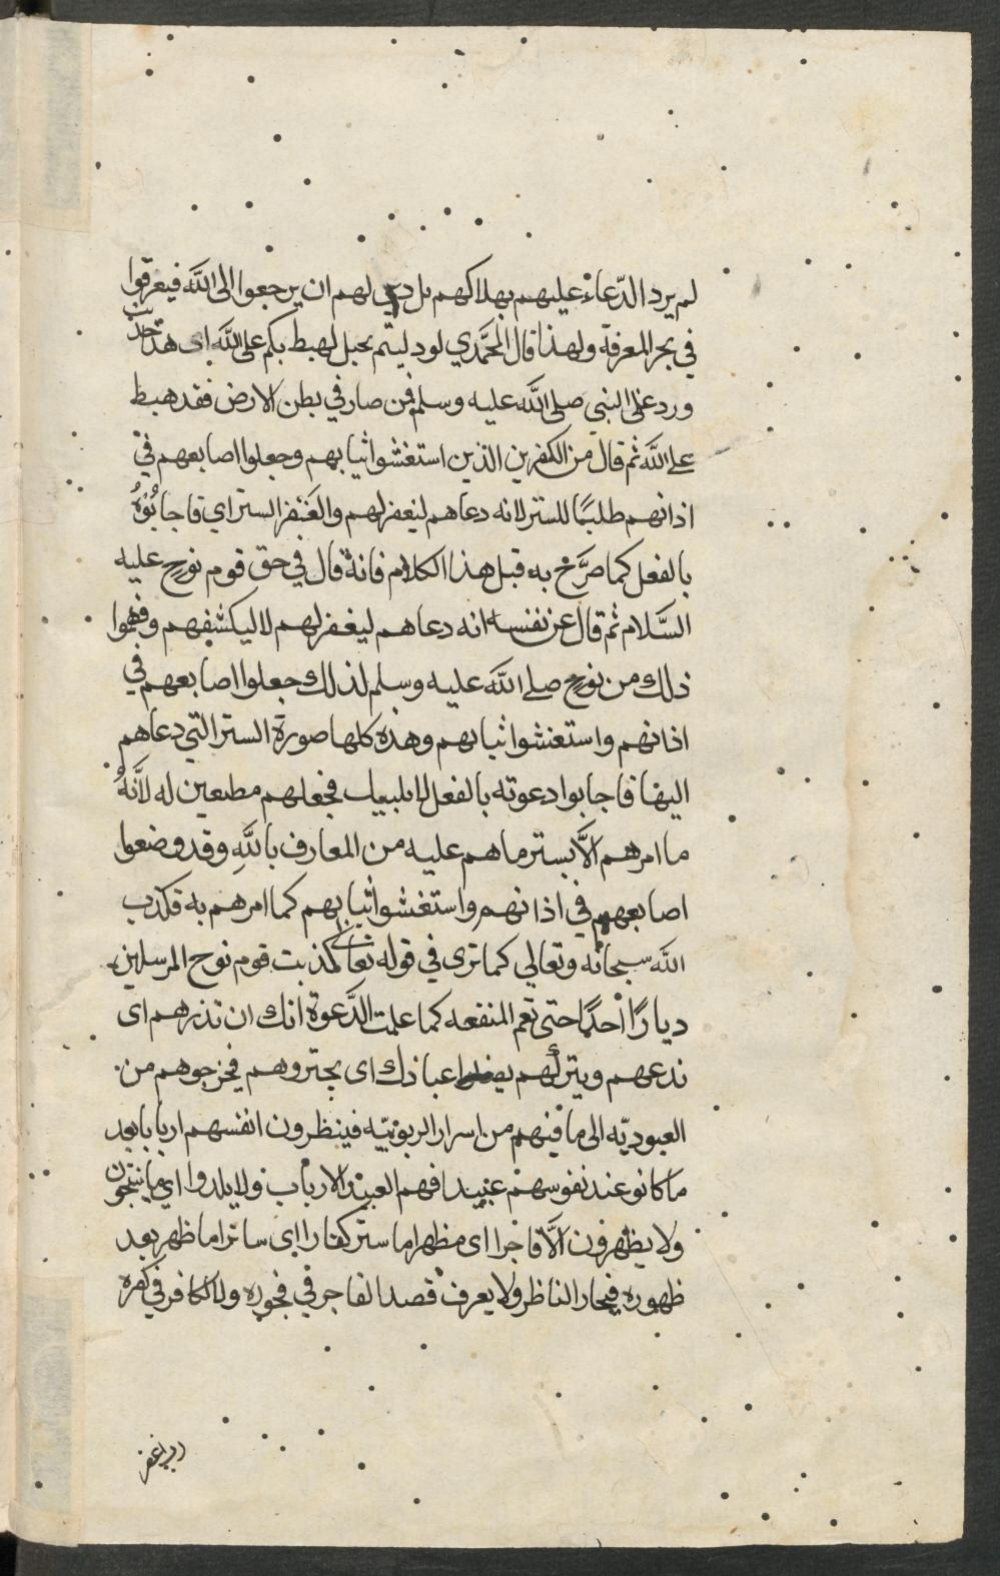 لم يرد الدّعاء عليهم بهلاكهم بل دعى لهم ان يرجعوا الى اللّه فيعرقوا
في بحر المعرفة ولهذا قال المحمَّدي لو دليتم بحبل لهبط بكم على اللّه اى هذا حديث
ورد عن النبي صلى اللّه عليه وسلم فمن صار في بطن الارض فقد هبط
على اللّه ثم قال من الكفرين الذين استغشوا ثيابهم وجعلوا اصابعهم في
اذانهم طلبًا للستر لانه دعاهم ليغفر لهم والغَفَر الستر اي فاجابُوُهُ
بالفعل كما صَرَّح به قبل هذا الكلام فانهُ قال في حق قوم نوح عليه
السَّلام ثم قال عن نفسه انه دعاهم ليغفر لهم لا ليكشفهم وفهموا
ذلك من نوح صلى اللّه عليه وسلم لذلك جعلوا اصابعهم في
اذانهم واستغشوا ثيابهم وهذه كلها صورة الستر التي دعاهم
اليها فاجابوا دعوته بالفعل لا بلبيك فجعلهم مطيعين له لاَنَّهُ
ما امرهم الاَّ بستر ما هم عليه من المعارف باللّهِ وقد وضعوا
اصابعهم في اذانهم واستغشوا ثيابهم كما امرهم به فكذب
اللّه سبحانه وتعالي كما ترى في قوله تعالى كذبت قوم نوح المرسلين
ديارًا احدًا حتى تعم المنفعه كما عمت الدَّعوة انك ان تذرهم اى
تدعهم وتتركهم يضلوا عبادك اى يحيروهم فيخرجوهم من
العبوديّه الى ما فيهم من اسرار الربوبيّه فينظرون انفسهم اربابا بعد
ما كانو عند نفوسهم عبيدا فهم العبيد الارباب ولا يلدوا اي ما ينتجون
ولا يظهرون الاَّ فاجرا اى مظهرا ما ستر كفارا اى ساترا ما ظهر بعد
ظهوره فيحار الناظر ولا يعرف قصد الفاجر في فجوره ولا الكافر في كفره
رب اغفر